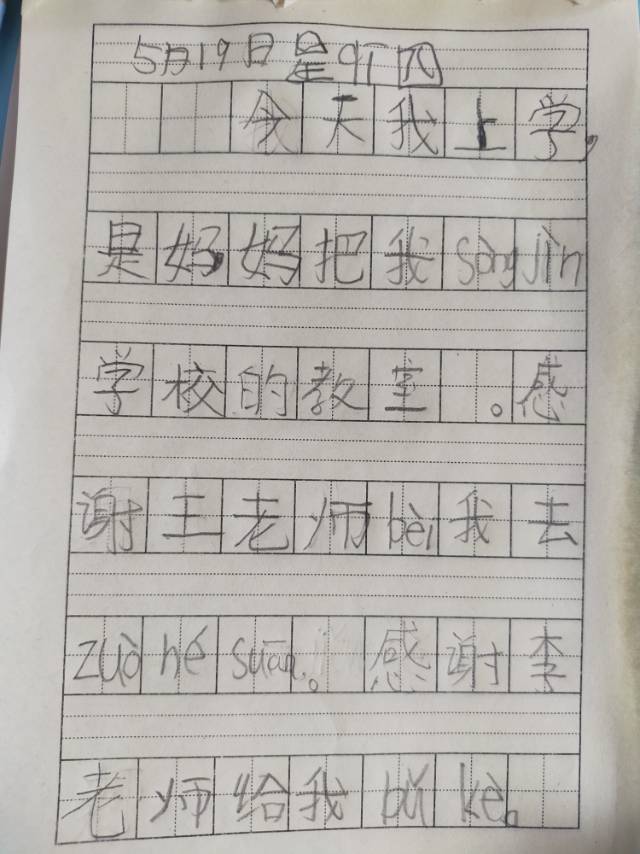 5月19日星qī四
今天我上学,
是妈妈把我sòngjìn
学校的教室。感
谢王老师bèi我去
zuò hé suān。感谢李
老师给我bǔ kè。